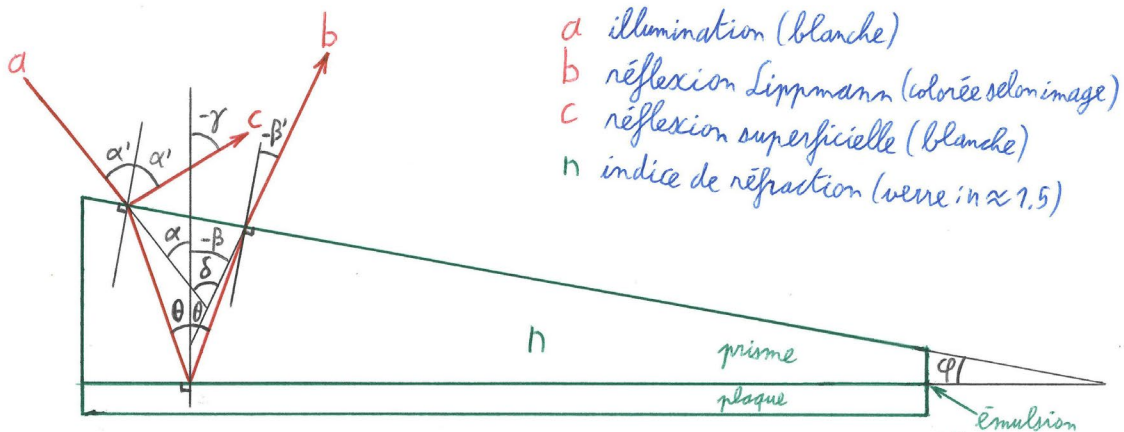 a illumination (blanche)
b réflexion Lippmann (colorée selon image)
c réflexion superficielle (blanche)
n indice de réfraction (verre : n ≈ 1.5)
a
b
c
-γ
-β'
α' α'
α
-β
δ
θ θ
n
prisme
φ
plaque
émulsion